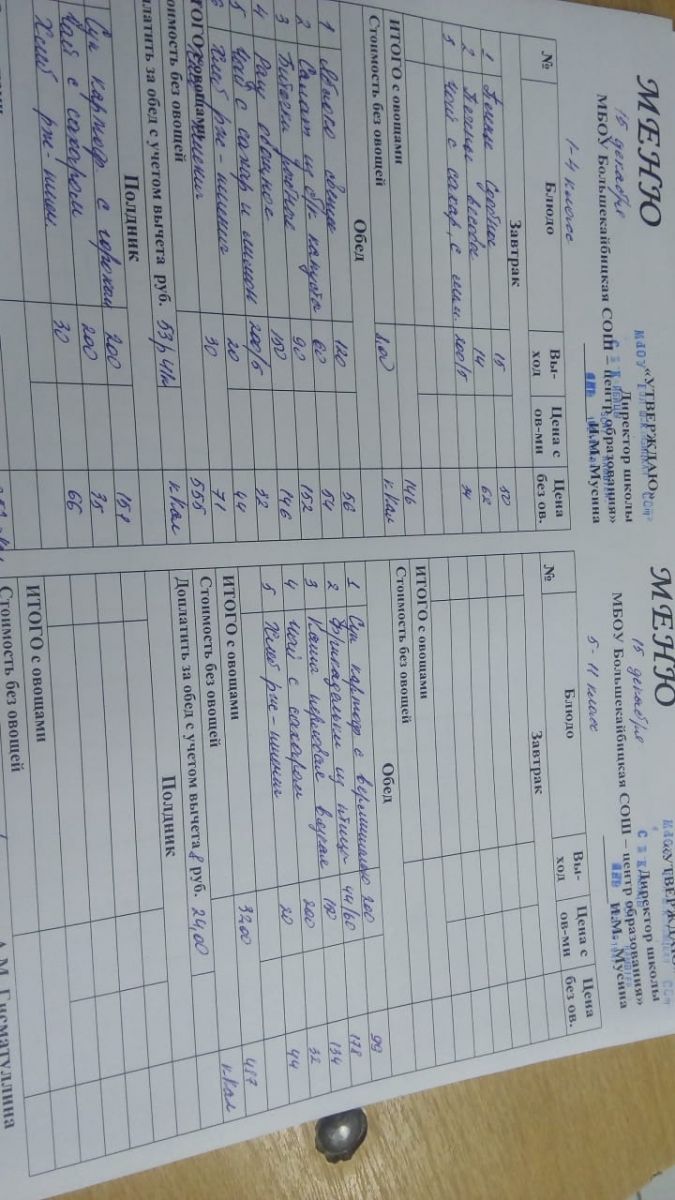 МЕНЮ
15 декабря
МБОУ Большекайбицкая СОШ – центр образования»
«УТВЕРЖДАЮ»
Директор школы
И.М. Мусина
1-4 классе
№ Блюдо Вы-ход Цена с ов-ми Цена без ов.
Завтрак
1 15 50
2 Печенье весовое 14 62
3 Чай с сахар, с лим. 200/5 34
ИТОГО с овощами 146
Стоимость без овощей 8,00 кКал
Обед
1 Яблоко свежее 120 56
2 Салат из св. капусты 60 54
3 Биточки рыбные 90 152
4 Рагу овощное 150 146
5 Чай с сахар и лимон 200/5 32
6 Хлеб рже-пшенич 20 44
30 71
ИТОГО с овощами 555
Стоимость без овощей кКал
Доплатить за обед с учетом вычета руб. 53р 41к
Полдник
Суп картоф с горохом 200 159
Чай с сахаром 200 35
Хлеб рже-пшен. 30 66
МЕНЮ
15 декабря
МБОУ Большекайбицкая СОШ – центр образования»
«УТВЕРЖДАЮ
Директор школы
И.М. Мусина
5-11 классе
№ Блюдо Вы-ход Цена с ов-ми Цена без ов.
Завтрак
ИТОГО с овощами
Стоимость без овощей
Обед
1 Суп картоф с вермишелью 200 99
2 Фрикадельки из птицы 44/60 178
3 Каша перловая вязкая 150 134
4 Чай с сахаром 200 32
5 Хлеб рже-пшенич 20 44
ИТОГО с овощами 32,00 487
Стоимость без овощей кКал
Доплатить за обед с учетом вычета 8 руб. 24,00
Полдник
ИТОГО с овощами
Стоимость без овощей
А.М. Гисматуллина